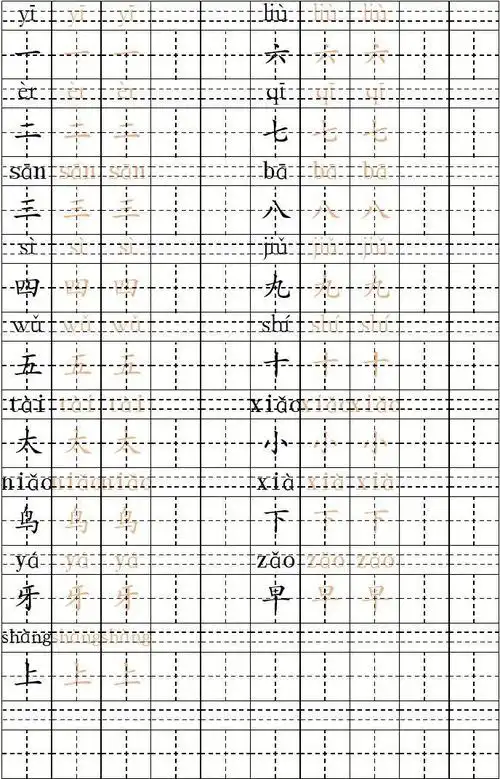 yī yī yī liù liù liù
一 一 一 六 六 六
èr èr èr qī qī qī
二 二 二 七 七 七
sān sān sān bā bā bā
三 三 三 八 八 八
sì sì sì jiǔ jiǔ jiǔ
四 四 四 九 九 九
wǔ wǔ wǔ shí shí shí
五 五 五 十 十 十
tài tài tài xiǎo xiǎo xiǎo
太 太 太 小 小 小
niǎo niǎo niǎo xià xià xià
鸟 鸟 鸟 下 下 下
yá yá yá zǎo zǎo zǎo
牙 牙 牙 早 早 早
shàng shàng shàng
上 上 上